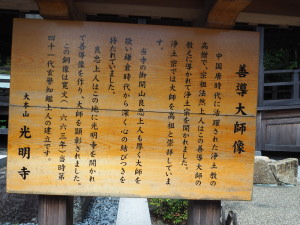 善導大師像
中国唐時代に活躍された浄土教の
高僧で、宗祖法然上人はこの善導大師の
教えに導かれて浄土宗を開かれました。
浄土宗では大師を高祖と崇拝していま
す。
当寺の御開山良忠上人も厚く大師を
敬い鎌倉時代から深く心の結びつきを
持たれていました。
良忠上人はこの地に光明寺を開かれ
て善導像を作り、大師を顕彰されました。
この銅像は寛文(一六六三年)当時第
四十一代玄誉知鑑上人の建立です。
大本山 光明寺